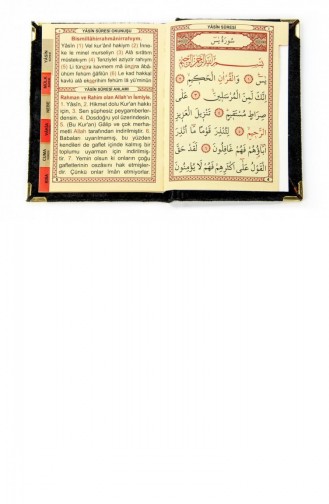 YÂSİN SÛRESİ OKUNUŞU
Bismillâhirrahmânirrahıym.
Yâsîn (1) Vel kur'ânil hakıym (2) İnne-
ke le minel murselîn (3) Alâ sırâtım
mustekıym (4) Tenziylel aziyzir rahıym
(5) Li tünzira kavmem mâ ünzira âbâ-
ühüm fehüm ğâfilûn (6) Le kad hakkal
kavlü alâ ekserihim fehüm lâ yü'minûn
YÂSİN SÛRESİ ANLAMI
Rahman ve Rahîm olan Allah'ın İsmiyle.
1. Yâsîn. 2. Hikmet dolu Kur'an hakkı
için, 3. Sen şüphesiz peygamberler-
densin. 4. Dosdoğru yol üzerindesin.
5. (Bu Kur'an) Gâlip ve çok merha-
metli Allah tarafından indirilmiştir. 6.
Babaları uyarılmamış, bu yüzden
kendileri de gaflet içinde kalmış bir
toplumu uyarman için indirilmiş-
tir. 7. Yemin olsun ki onların çoğu
gafletlerinin azâbını hak etmişler-
dir. Çünkü onlar îmân etmiyorlar.
YÂSİN
CUMA
YÂSİN SÛRESİ
سُورَةُ يٰسٓ
بِسْمِ اللّٰهِ الرَّحْمٰنِ الرَّحِيمِ
يٰسٓ ۞ وَالْقُرْاٰنِ الْحَكِيمِ ۞
اِنَّكَ لَمِنَ الْمُرْسَلِينَ ۞ عَلٰى
صِرَاطٍ مُسْتَقِيمٍ ۞ تَنْزِيلَ الْعَزِيزِ
الرَّحِيمِ ۞ لِتُنْذِرَ قَوْمًا مَٓا اُنْذِرَ
اٰبَٓاؤُهُمْ فَهُمْ غَافِلُونَ ۞ لَقَدْ حَقَّ
الْقَوْلُ عَلٰٓى اَكْثَرِهِمْ فَهُمْ لَا يُؤْمِنُونَ